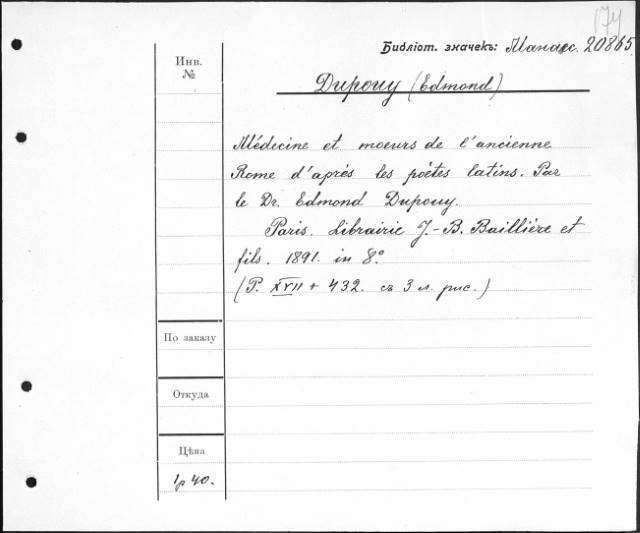 174
Библiот. значекъ: Манасс. 20865.
Инв.
№
Dupouy (Edmond)
Médecine et moeurs de l'ancienne
Rome d'après les poètes latins. Par
le Dr. Edmond Dupouy.
Paris. Librairie J.-B. Baillière et
fils. 1891. in 8°
(P. XVII + 432. съ 3 л. рис.)
По заказу
Откуда
Цѣна
1р 40.